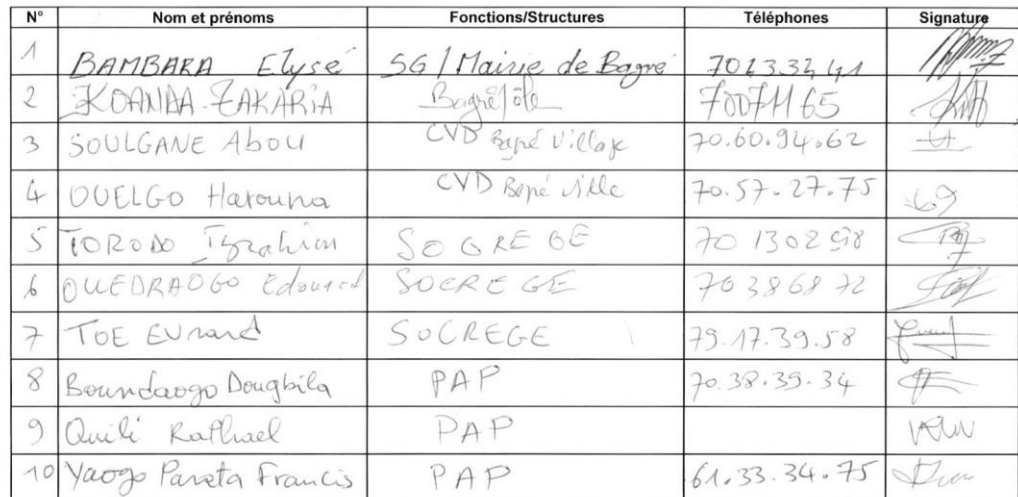 N° Nom et prénoms Fonctions/Structures Téléphones Signature
1 BAMBARA Elysé SG/Mairie de Bagré 70 23 32 41
2 KOANDA ZAKARIA Bagrépôle 70071165
3 SOULGANE Abou CVD Bagré Village 70.60.94.62
4 OUELGO Harouna CVD Bagré ville 70.57.27.75
5 TORODO Ibrahim SOGREGE 70 1302
6 OUEDRAOGO Edouard SOCREGE 70386872
7 TOE EVrard SOCREGE 79.17.39.58
8 Boundaogo Dougbila PAP 70.38.39.34
9 Quili Raphael PAP
10 Yaogo Francis PAP 61.33.34.75